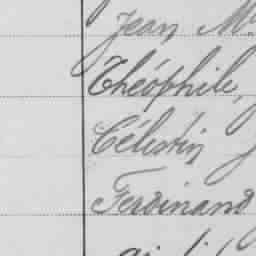 Jean M
Théophile,
Célestin
Ferdinand